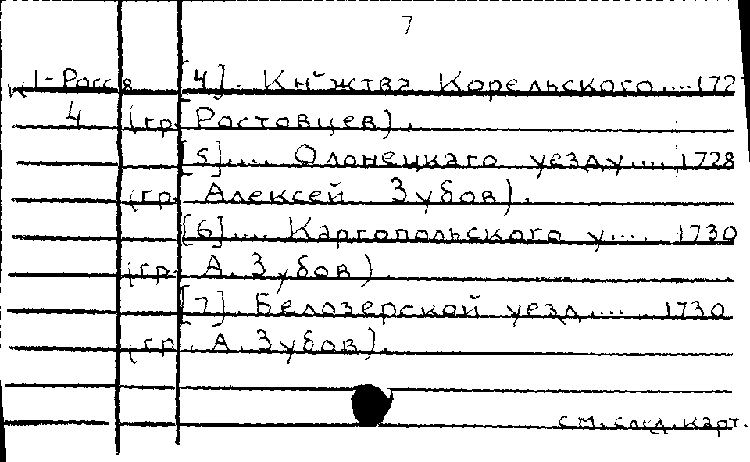 7
К 1-Росс [4]. Кн-жтва Корельского....172
4 (гр. Ростовцев).
[5].... Олонецкаго уезду.... 1728
(гр. Алексей Зубов).
[6].... Каргопольского у.... 1730
(гр. А. Зубов).
[7]. Белозерской уезд..... 1730
(гр. А. Зубов).
см. след. карт.